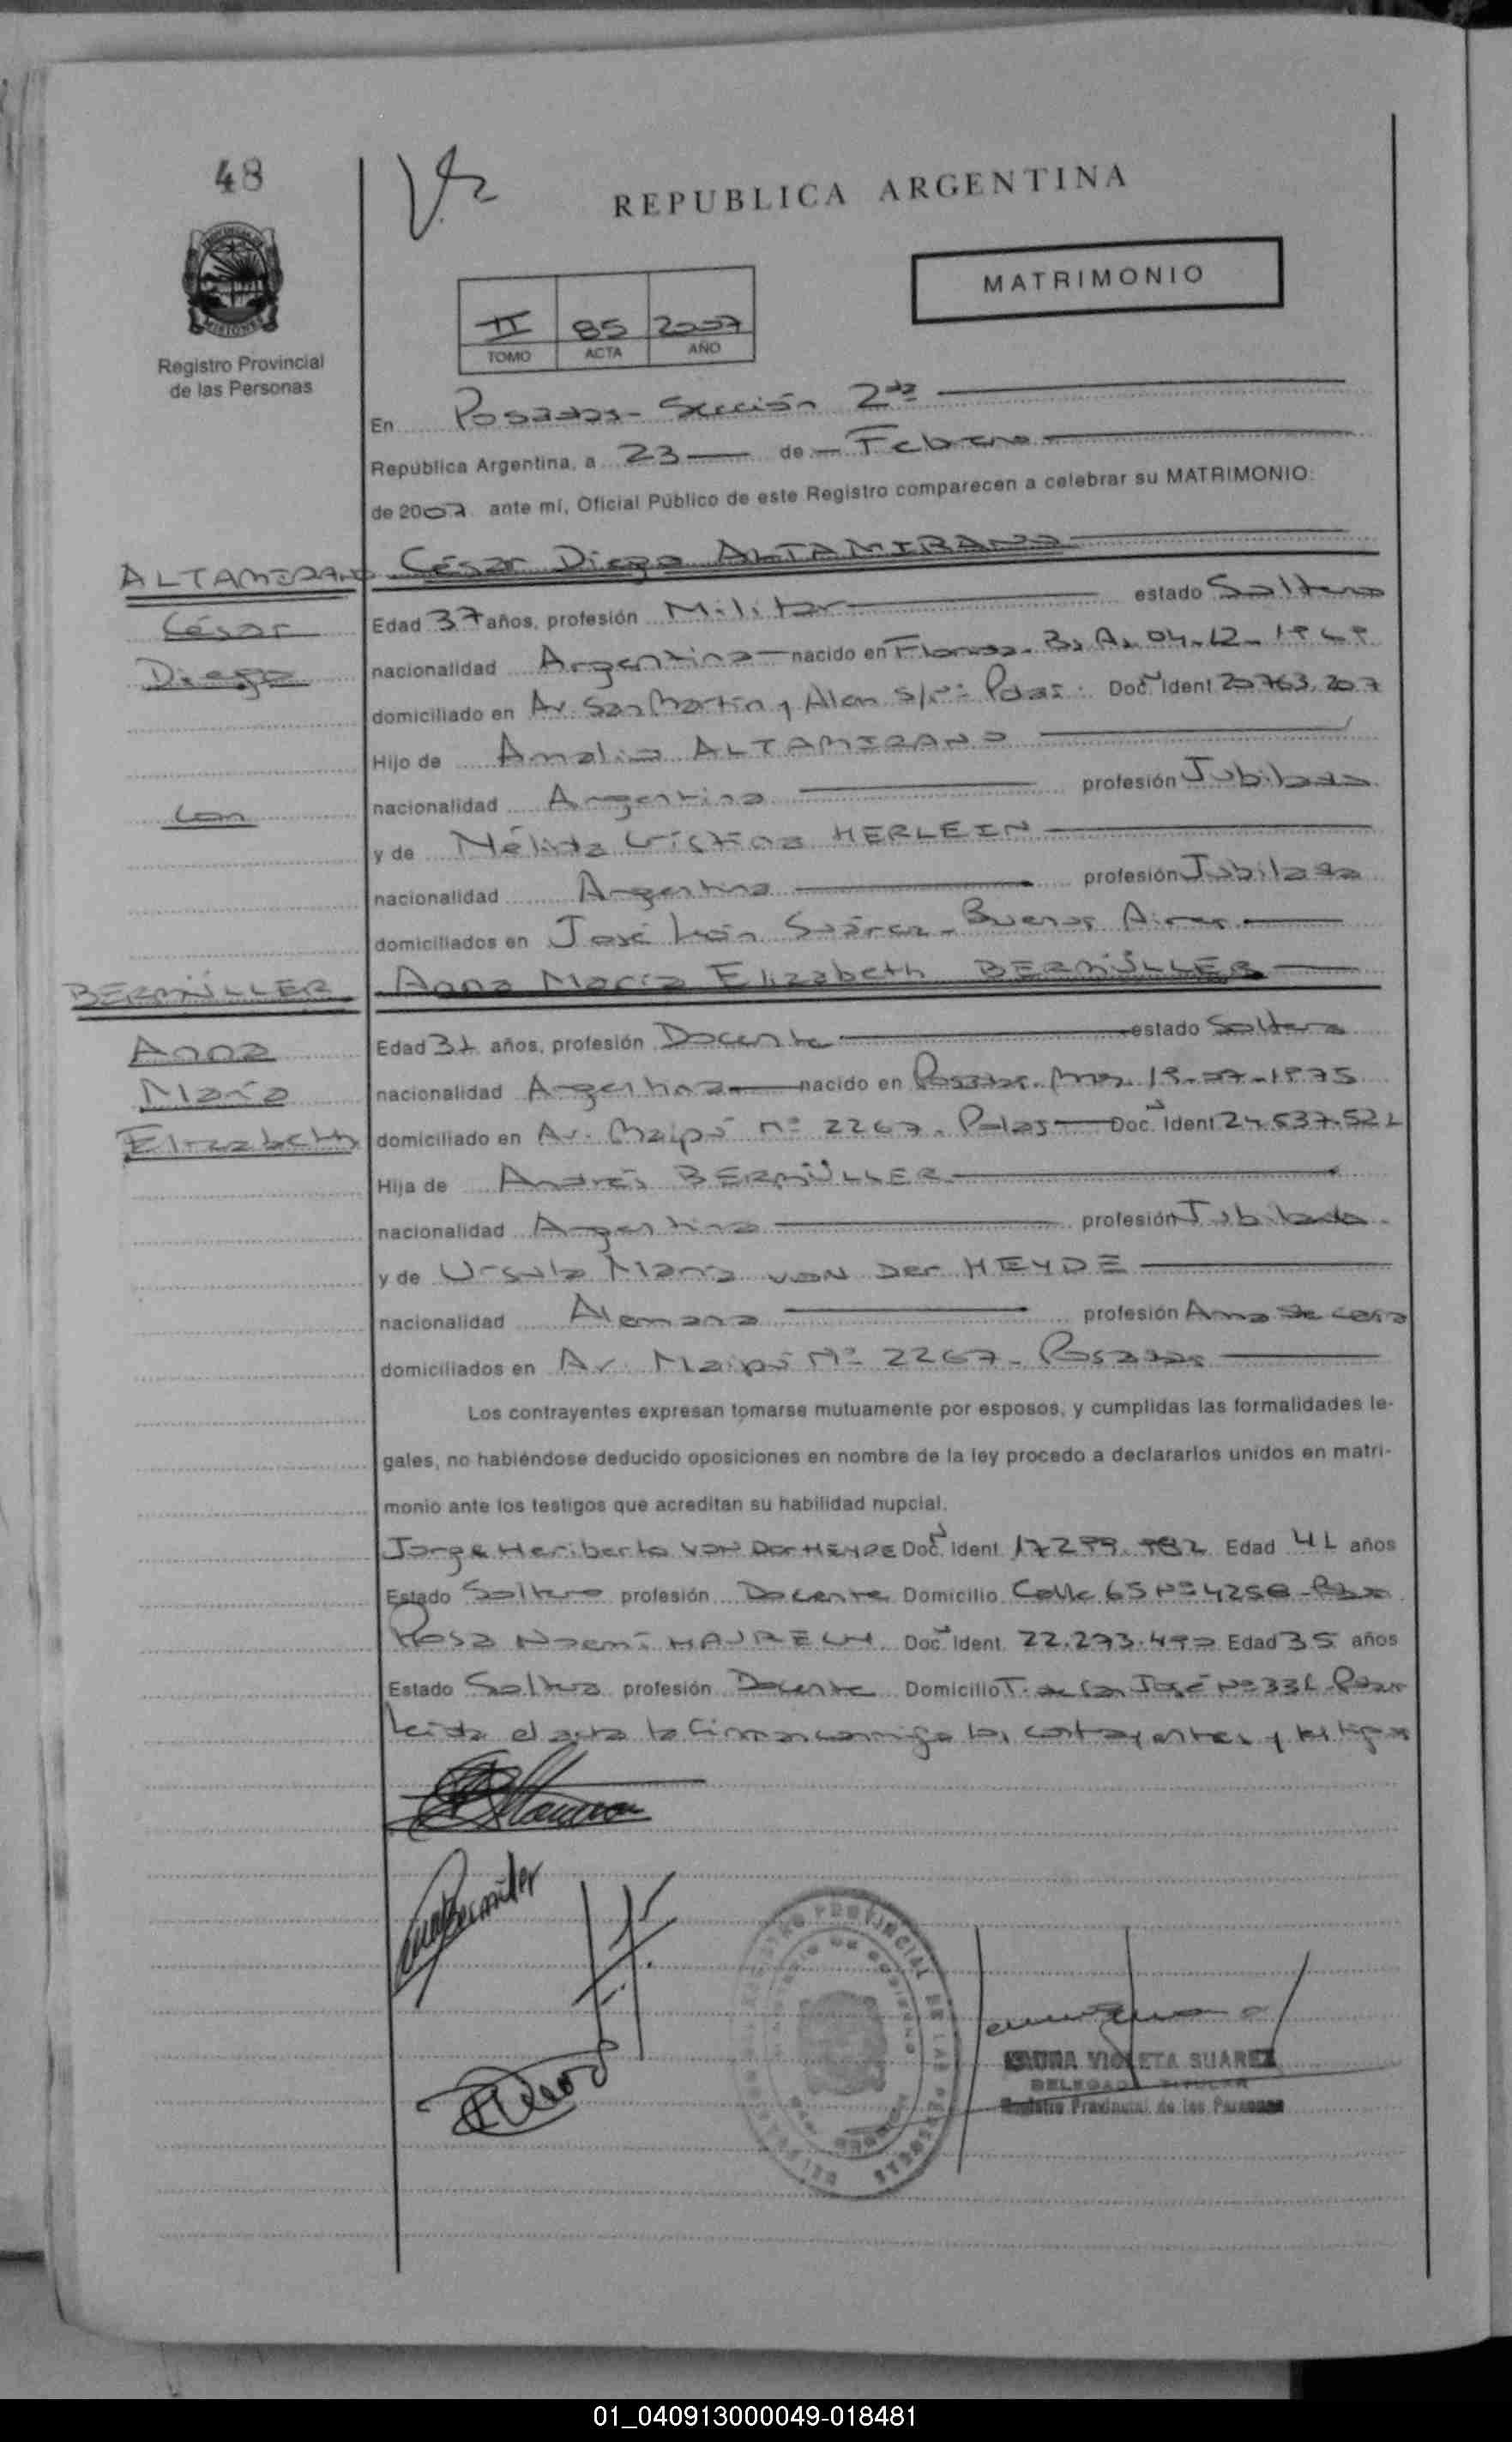 48
REPUBLICA ARGENTINA
MATRIMONIO
II 85 2007
TOMO ACTA AÑO
MISIONES
Registro Provincial
de las Personas
En Posadas - Sección 2da
República Argentina, a 23 de Febrero
de 2007 ante mí, Oficial Público de este Registro comparecen a celebrar su MATRIMONIO:
ALTAMIRANO César Diego ALTAMIRANO
César
Diego
Edad 37 años, profesión Militar estado Soltero
nacionalidad Argentina nacido en Bs As 04-12-1969
domiciliado en Av. San Martín y Alem s/nº Pdas. Doc. Ident 20.763.207
Hijo de Amalio ALTAMIRANO
con
nacionalidad Argentina profesión Jubilado
y de Nélida Cristina HERLEIN
nacionalidad Argentina profesión Jubilada
domiciliados en José León Suárez - Buenos Aires
BERMÜLLER Anna María Elizabeth BERMÜLLER
Anna
María
Elizabeth
Edad 31 años, profesión Docente estado Soltera
nacionalidad Argentina nacido en Posadas. Mnes. 19-07-1975
domiciliado en Av. Maipú nº 2267. Pdas Doc. Ident 24.537.521
Hija de Andrés BERMÜLLER
nacionalidad Argentina profesión Jubilado
y de Ursula María von Der HEYDE
nacionalidad Alemana profesión Ama de casa
domiciliados en Av. Maipú Nº 2267 - Posadas
Los contrayentes expresan tomarse mutuamente por esposos, y cumplidas las formalidades le-
gales, no habiéndose deducido oposiciones en nombre de la ley procedo a declararlos unidos en matri-
monio ante los testigos que acreditan su habilidad nupcial.
Jorge Heriberto VON Der HEYDE Doc. Ident. 17.299.982 Edad 41 años
Estado Soltero profesión Docente Domicilio Calle 65 Nº 4258 - Pdas
Rosa Noemí Doc. Ident. 22.273.490 Edad 35 años
Estado Soltera profesión Docente Domicilio T. de San José Nº 331 - Pdas
Leida el acta la firman conmigo los contrayentes y testigos
REGISTRO PROVINCIAL DE LAS PERSONAS
LAURA VIOLETA SUAREZ
DELEGADA TITULAR
Registro Provincial de las Personas
01_040913000049-018481